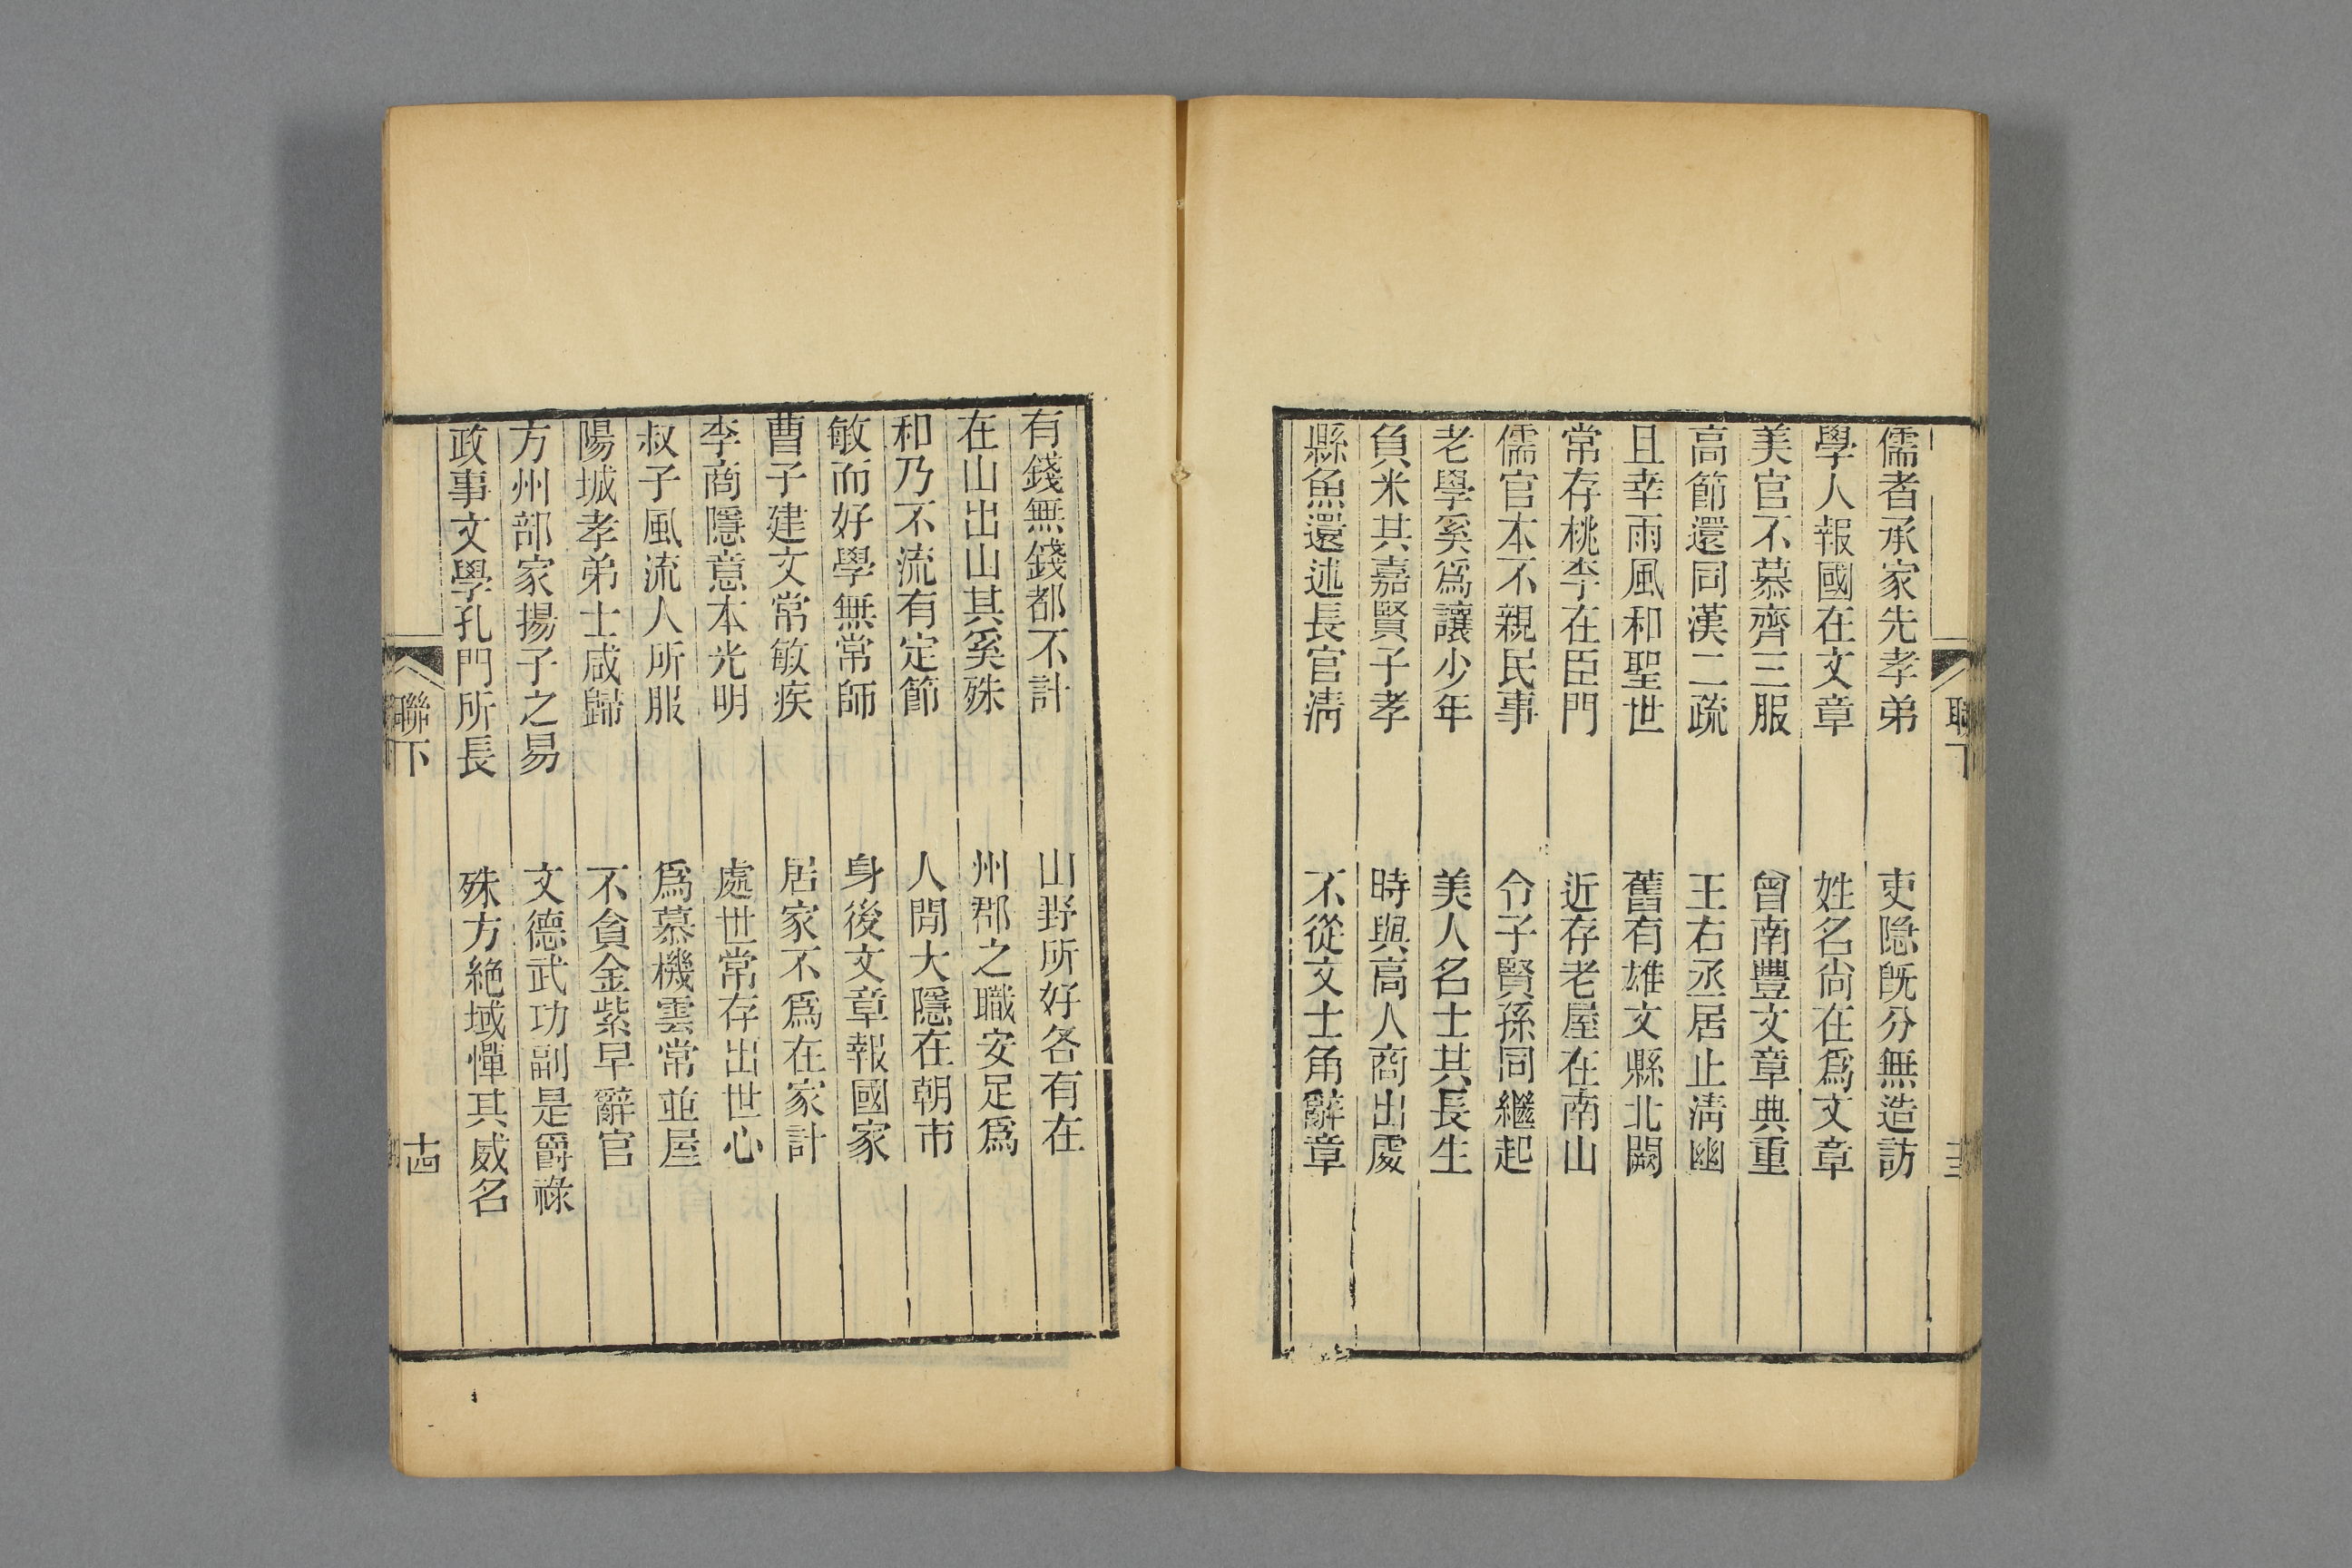 聯下
十三
儒者承家先孝弟　吏隱旣分無造訪
學人報國在文章　姓名尙在爲文章
美官不慕齊三服　曾南豐文章典重
高節還同漢二疏　王右丞居止淸幽
且幸雨風和聖世　舊有雄文縣北闕
常存桃李在臣門　近存老屋在南山
儒官本不親民事　令子賢孫同繼起
老學奚爲讓少年　美人名士其長生
負米其嘉賢子孝　時與高人商出處
縣魚還述長官淸　不從文士角辭章
有錢無錢都不計　山野所好各有在
在山出山其奚殊　州郡之職安足爲
和乃不流有定節　人閒大隱在朝市
敏而好學無常師　身後文章報國家
曹子建文常敏疾　居家不爲在家計
李商隱意本光明　處世常存出世心
叔子風流人所服　爲慕機雲常並屋
陽城孝弟士咸歸　不貪金紫早辭官
方州部家揚子之易　文德武功副是爵祿
政事文學孔門所長　殊方絕域憚其威名
聯下
十四